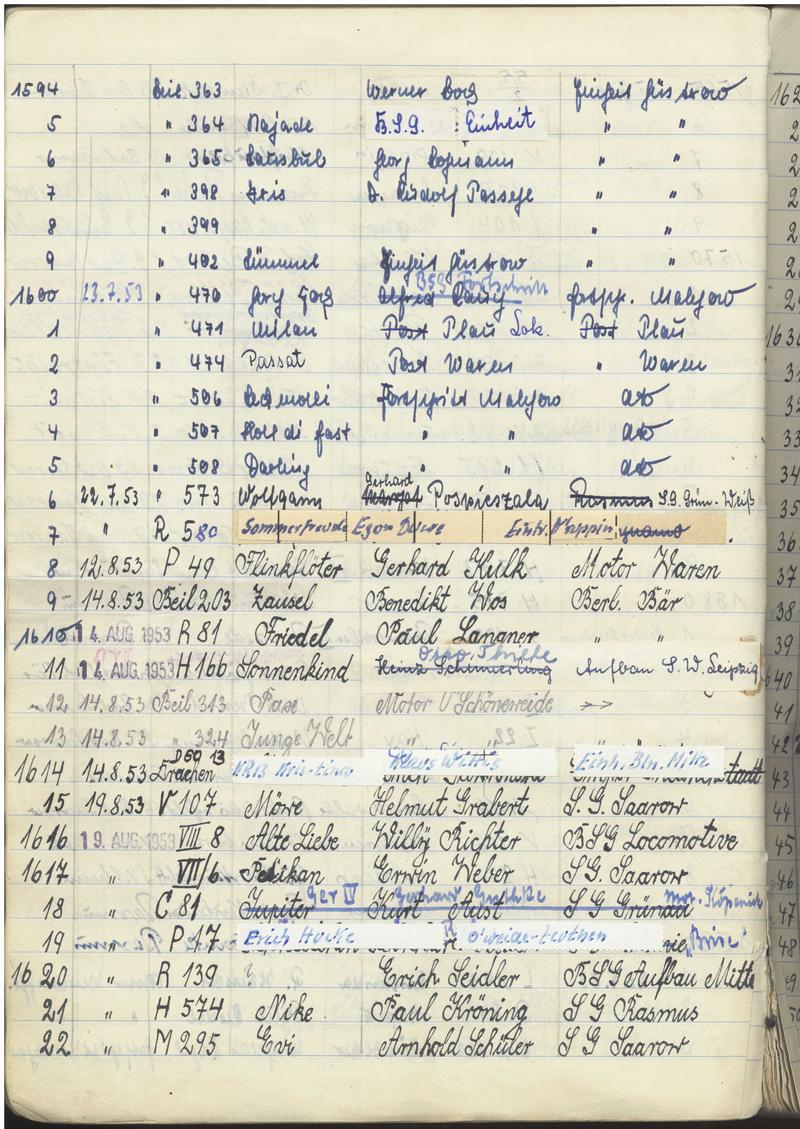 1594 Beil. 363 Werner Bock Einheit Güstrow
5 " 364 Najade B.S.G. : Einheit " "
6 " 365 Georg " "
7 " 398 Iris D. Rudolf " "
8 " 399 " "
9 " 402 Lümmel Einheit Güstrow " "
BSG Fortschritt
1600 23.7.53 " 470 Alfred Malchow
1 " 471 Milan Post Plau Lok. Post Plau
2 " 474 Passat Post Waren " Waren
3 " 506 Fortschritt Malchow dto
4 " 507 Holl di fast " " dto
5 " 508 Darling " " dto
Gerhard
6 22.7.53 " 573 Wolfgang Margot Pospieszala Rasmus S.G. Grün-Weiß
7 " R 580 Sommerfreude Egon Eintr.
8 12.8.53 P 49 Flinkflöter Gerhard Kulk Motor Waren
9 14.8.53 Beil 203 Zausel Benedikt Wos Berl. Bär
1610 14. AUG. 1953 R 81 Friedel Paul Langner " "
11 14. AUG. 1953 H 166 Sonnenkind Heinz Schmuerling Aufbau S.W. Leipzig
12 14.8.53 Beil 313 Faxe Motor OSchöneweide
13 14.8.53 " 324 Junge Welt
D 59 13
1614 14.8.53 Drachen KRB Kristina Klaus Wittig Einh. Bln. Mitte
15 19.8.53 V 107 Möwe Helmut Grabert S.G. Saarow
1616 19. AUG. 1953 VIII 8 Alte Liebe Willy Richter BSG Locomotive
1617 " VII/6 Pelikan Erwin Weber SG. Saarow
Ger V Gerhard Mot. Köpenick
18 " C 81 Jupiter Kurt Aust SG Grünau
19 " P 17 Erich Hucke "Brise"
1620 " R 139 ? Erich Seidler BSG Aufbau Mitte
21 " H 574 Nike Paul Kröning SG Rasmus
22 " M 295 Evi Arnhold Schüler SG Saarow
162
1630
31
32
33
34
35
36
37
38
39
40
41
42
43
44
45
46
47
48
49
50